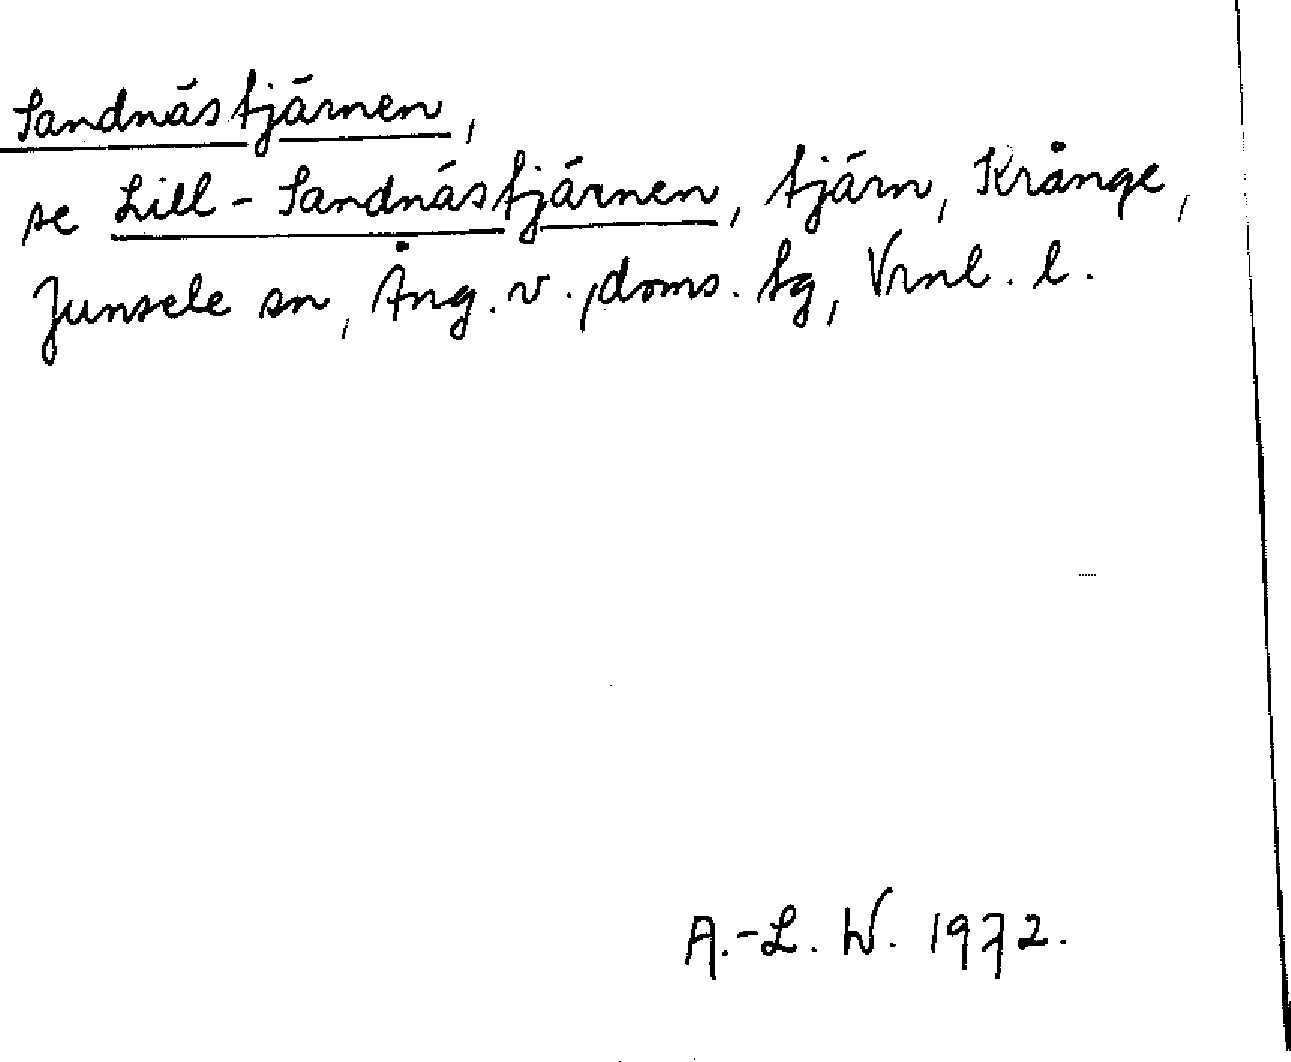 Sandnästjärnen,
se Lill-Sandnästjärnen, tjärn, Krånge,
Junsele sn, Ång. v., doms. tg, Vrnl. l.
A.-L. W. 1972.